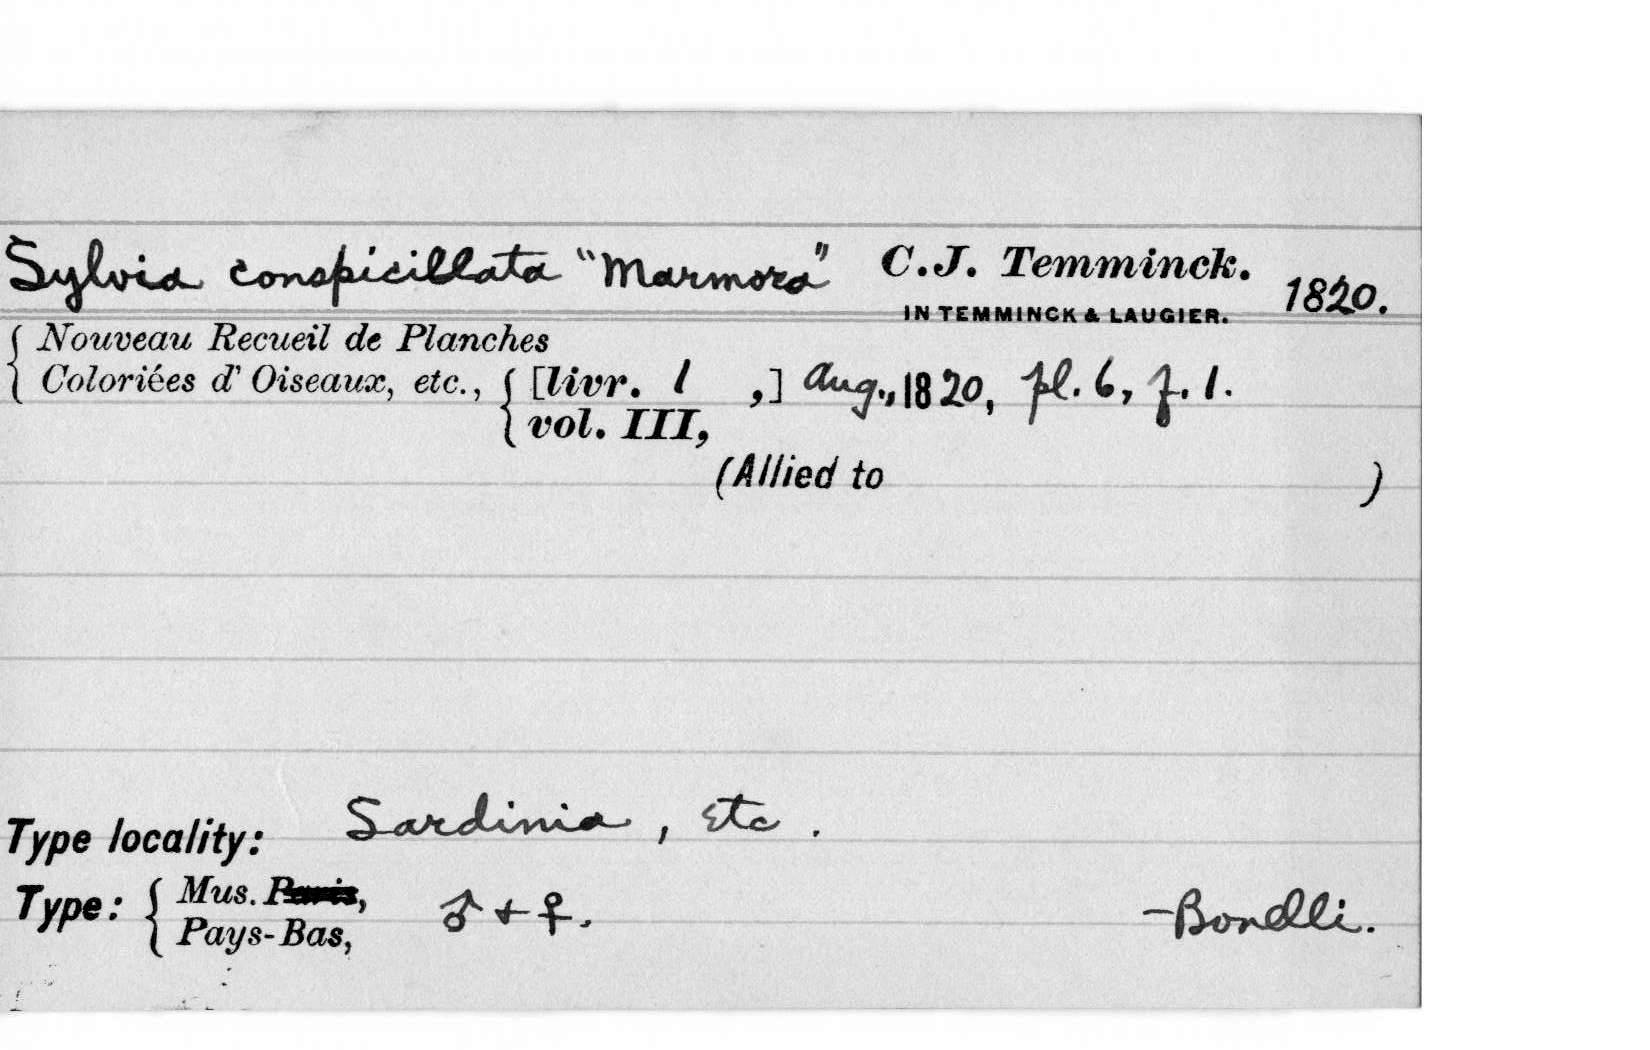 Sylvia conspicillata "Marmora" C.J. Temminck. 1820.
IN TEMMINCK & LAUGIER.
Nouveau Recueil de Planches
Coloriées d' Oiseaux, etc., [livr. 1 ,] Aug., 1820, pl. 6, f. 1.
vol. III,
(Allied to )
Type locality: Sardinia, Etc.
Type: Mus. Paris, ♂ + ♀. -Bonelli.
Pays-Bas,